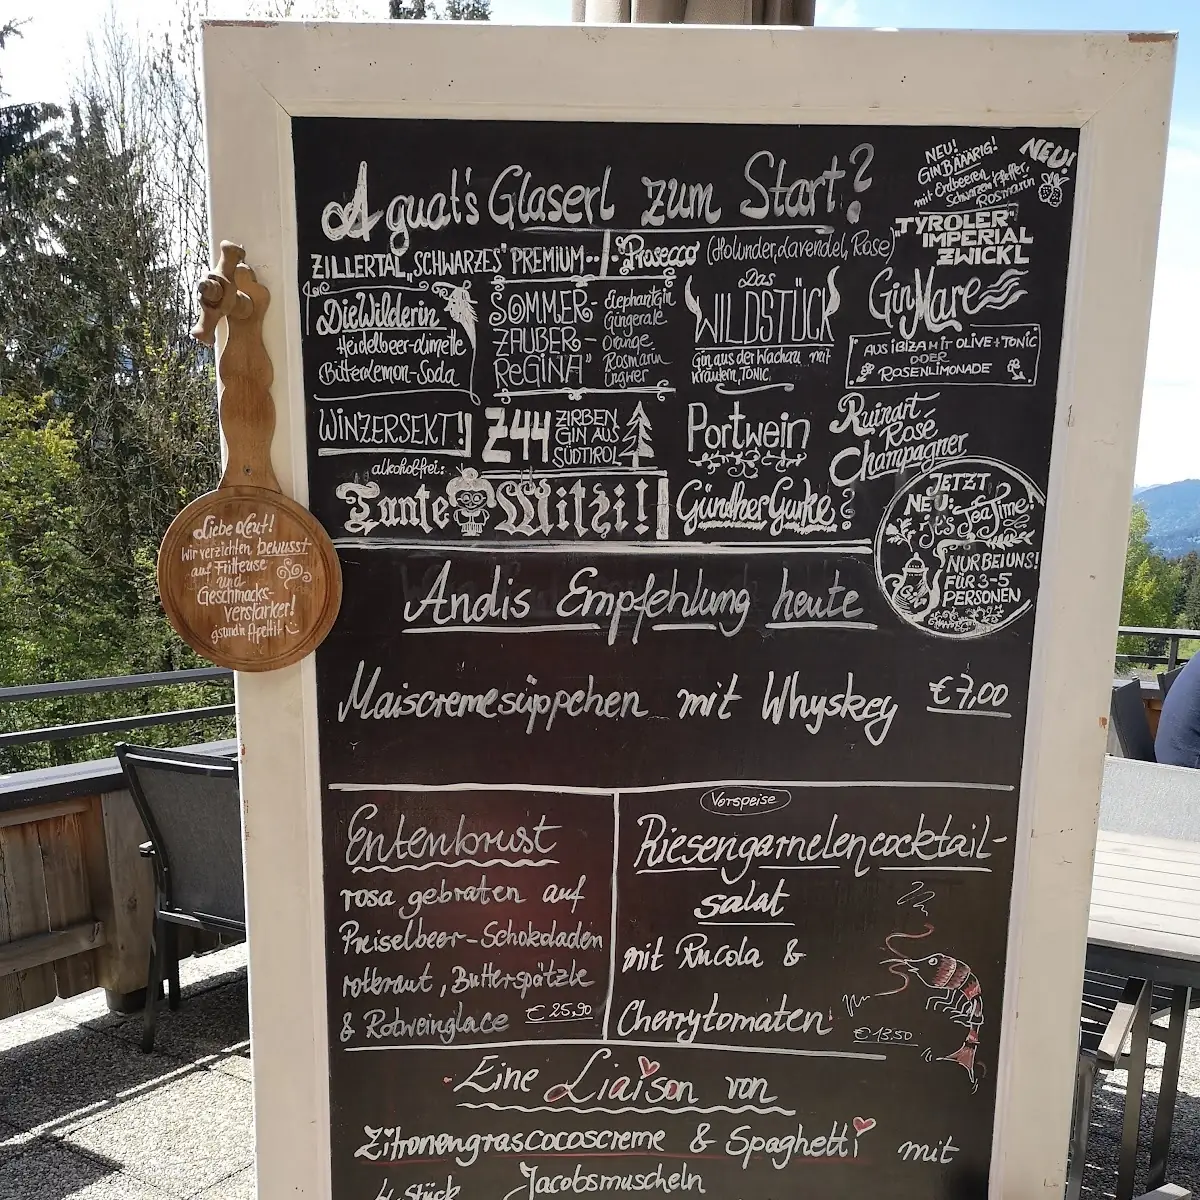 A guat's Glaserl zum Start?
NEU!
GIN BÄÄÄRIG!
mit Erdbeeren,
Schwarzem Pfeffer,
ROSMARIN
NEU!
ZILLERTAL „SCHWARZES" PREMIUM..
Prosecco (Holunder, Lavendel, Rose)
"TYROLER"
IMPERIAL
ZWICKL
Die Wilderin
Heidelbeer-Limette
Bitterlemon-Soda
SOMMER-
ZAUBER-
"REGINA"
Elephantgin
Gingerale
Orange
Rosmarin
Ingwer
Das
WILDSTÜCK
Gin aus der Wachau mit
Kräutern, TONIC.
Gin Mare
AUS IBIZA MIT OLIVE + TONIC
ODER
ROSENLIMONADE
WINZERSEKT!
Z44
ZIRBEN
GIN AUS
SÜDTIROL
Portwein
Ruinart
Rosé
Champagner
alkoholfrei:
Tante Mitzi!
Günther Gurke?
JETZT
NEU:
It's TeaTime!
NUR BEI UNS!
FÜR 3-5
PERSONEN
Liebe Leut!
Wir verzichten bewusst
auf Fritteuse
und
Geschmacks-
verstärker!
g'sundn Apetitt
Andis Empfehlung heute
Maiscremesüppchen mit Whyskey €7,00
Entenbrust
rosa gebraten auf
Preiselbeer-Schokoladen
rotkraut, Butterspätzle
& Rotweinglace € 25,90
Vorspeise
Riesengarnelencocktail-
salat
mit Rucola &
Cherrytomaten € 13,50
Eine Liaison von
Zitronengrascocoscreme & Spaghetti mit
4 Stück Jacobsmuscheln